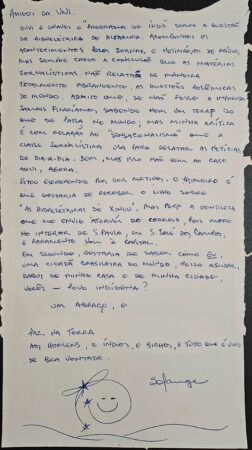 AMIGOS DA UNI.
OUVI E GRAVEI O "PROGRAMA DE ÍNDIO" SOBRE A QUESTÃO
DA HIDRELÉTRICA DE ALTAMIRA. ACOMPANHEI OS
ACONTECIMENTOS PELOS JORNAIS, E NOTICIÁRIOS DE RÁDIO,
MAS SEMPRE CHEGO A CONCLUSÃO QUE AS MATÉRIAS
JORNALÍSTICAS NÃO RELATAM DE MANEIRA
TOTALMENTE ABRANGENTE, AS QUESTÕES POLÊMICAS
DO MUNDO. ADMITO QUE SE NÃO FOSSE A IMPRENSA
JAMAIS FICARÍAMOS SABENDO NEM UM TERÇO DO
QUE SE PASSA NO MUNDO, MAS MINHA CRÍTICA
É COM RELAÇÃO AO "SENSACIONALISMO" QUE A
CLASSE JORNALÍSTICA USA PARA RELATAR AS NOTÍCIAS
DO DIA-A-DIA. BEM, MAS ISSO NÃO VEM AO CASO
AQUI, AGORA.
ESTOU ESCREVENDO POR DOIS MOTIVOS. O PRIMEIRO É
QUE GOSTARIA DE RECEBER O LIVRO SOBRE
"AS HIDRELÉTRICAS DO XINGU". MAS PEÇO A GENTILEZA
QUE ME ENVIE ATRAVÉS DO CORREIO, POIS MORO
NO INTERIOR DE S. PAULO, EM S. JOSÉ DOS CAMPOS,
E RARAMENTE VOU À CAPITAL.
EM SEGUNDO, GOSTARIA DE SABER COMO EU,
UMA CIDADÃ BRASILEIRA DO MUNDO, POSSO AJUDAR,
DAQUI DE MINHA CASA E DE MINHA CIDADE,
VOCÊS, O POVO INDÍGENA?
UM ABRAÇO, E
PAZ NA TERRA
AOS HOMENS, E ÍNDIOS, E BICHOS, E TUDO QUE É VIVO
DE BOA VONTADE.
Solange